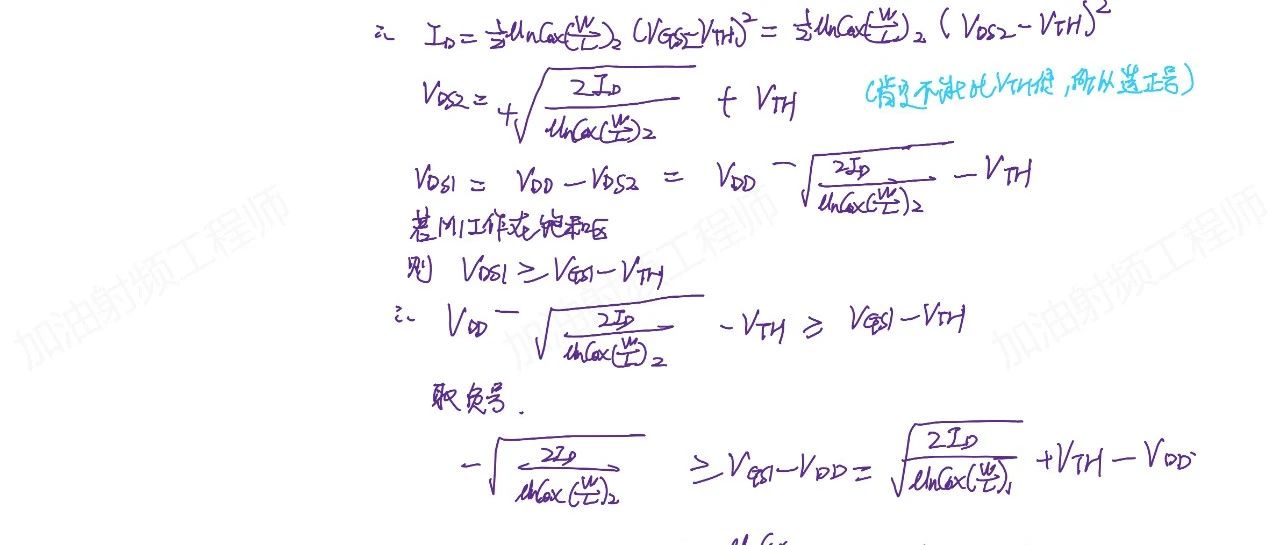 ∴ I_D = ½ μnCox(W/L)₂ (V_GS2 - V_TH)² = ½ μnCox(W/L)₂ (V_DS2 - V_TH)²
V_DS2 = +√(2I_D / μnCox(W/L)₂) + V_TH (肯定不能比V_TH低,所以选正号)
V_DS1 = V_DD - V_DS2 = V_DD - √(2I_D / μnCox(W/L)₂) - V_TH
若M1工作在饱和区
则 V_DS1 ≥ V_GS1 - V_TH
∴ V_DD - √(2I_D / μnCox(W/L)₂) - V_TH ≥ V_GS1 - V_TH
取负号.
-√(2I_D / μnCox(W/L)₂) ≥ V_GS1 - V_DD = √(2I_D / μnCox(W/L)₁) + V_TH - V_DD
加油射频工程师
加油射频工程师
加油射频工程师